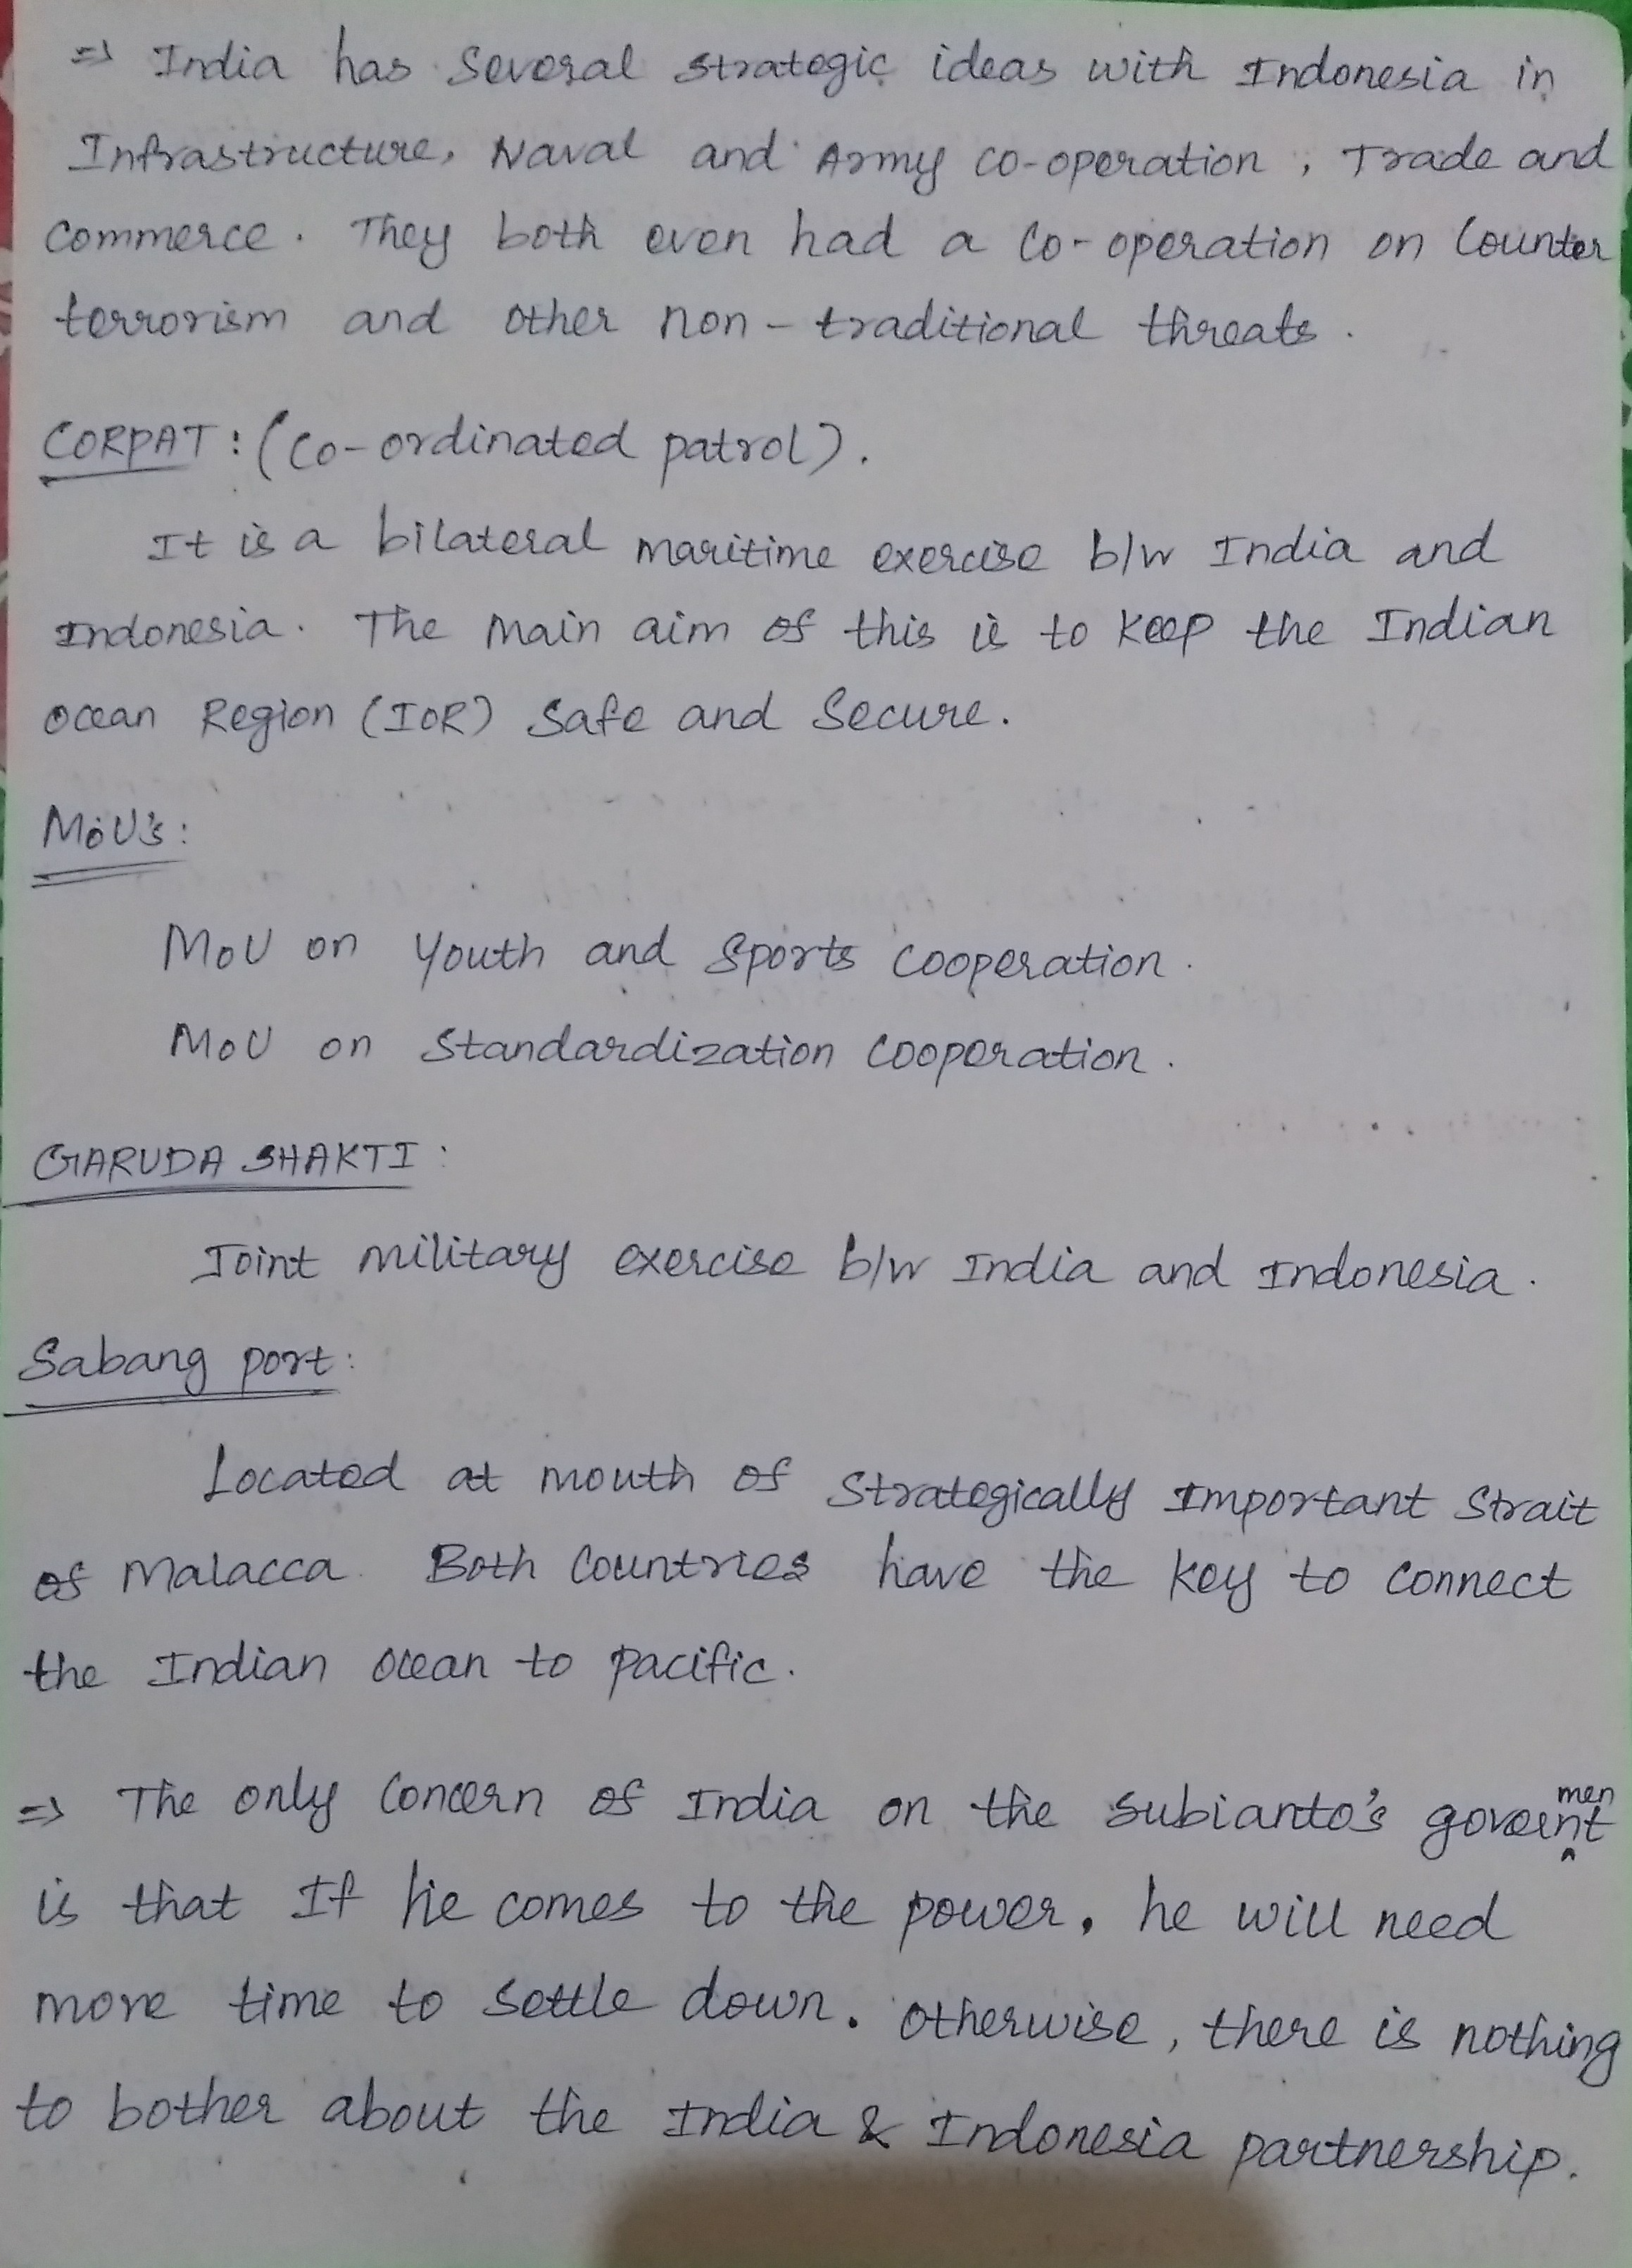 => India has Several strategic ideas with Indonesia in
Infrastructure, Naval and Army co-operation, Trade and
Commerce. They both even had a Co-operation on Counter
terrorism and other non-traditional threats.
CORPAT: (Co-ordinated patrol).
It is a bilateral maritime exercise b/w India and
Indonesia. The main aim of this is to keep the Indian
Ocean Region (IOR) Safe and Secure.
MoU's:
MoU on Youth and Sports Cooperation.
MoU on Standardization Cooperation.
GARUDA SHAKTI:
Joint military exercise b/w India and Indonesia.
Sabang port:
Located at mouth of Strategically Important Strait
of Malacca. Both Countries have the key to connect
the Indian Ocean to pacific.
=> The only Concern of India on the Subianto's government
is that If he comes to the power, he will need
more time to settle down. Otherwise, there is nothing
to bother about the India & Indonesia partnership.